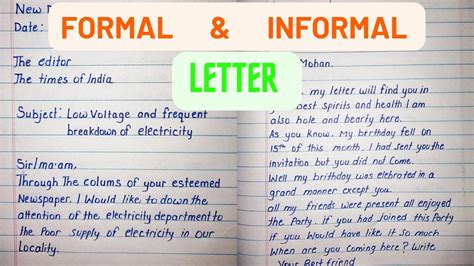 FORMAL & INFORMAL
LETTER
New
Date:
The editor
The times of India
Subject: Low Voltage and frequent
breakdown of electricity
Sir/ma'am,
Through The colums of your esteemed
Newspaper. I Would like to down the
attention of the electricity department to
the Poor supply of electricity in our
Locality.
Mohan.
my letter will find you in
best spirits and health I am
also hole and hearty here.
As you know. My birthday fell on
15th of this month. I had sent you the
invitation but you did not Come.
Well my birthday was celebrated in a
grand manner except you.
all my friends were present all enjoyed
the Party. if you had joined this Party
if you Would have like it so much
When are you Coming here? Write
Your Best friend